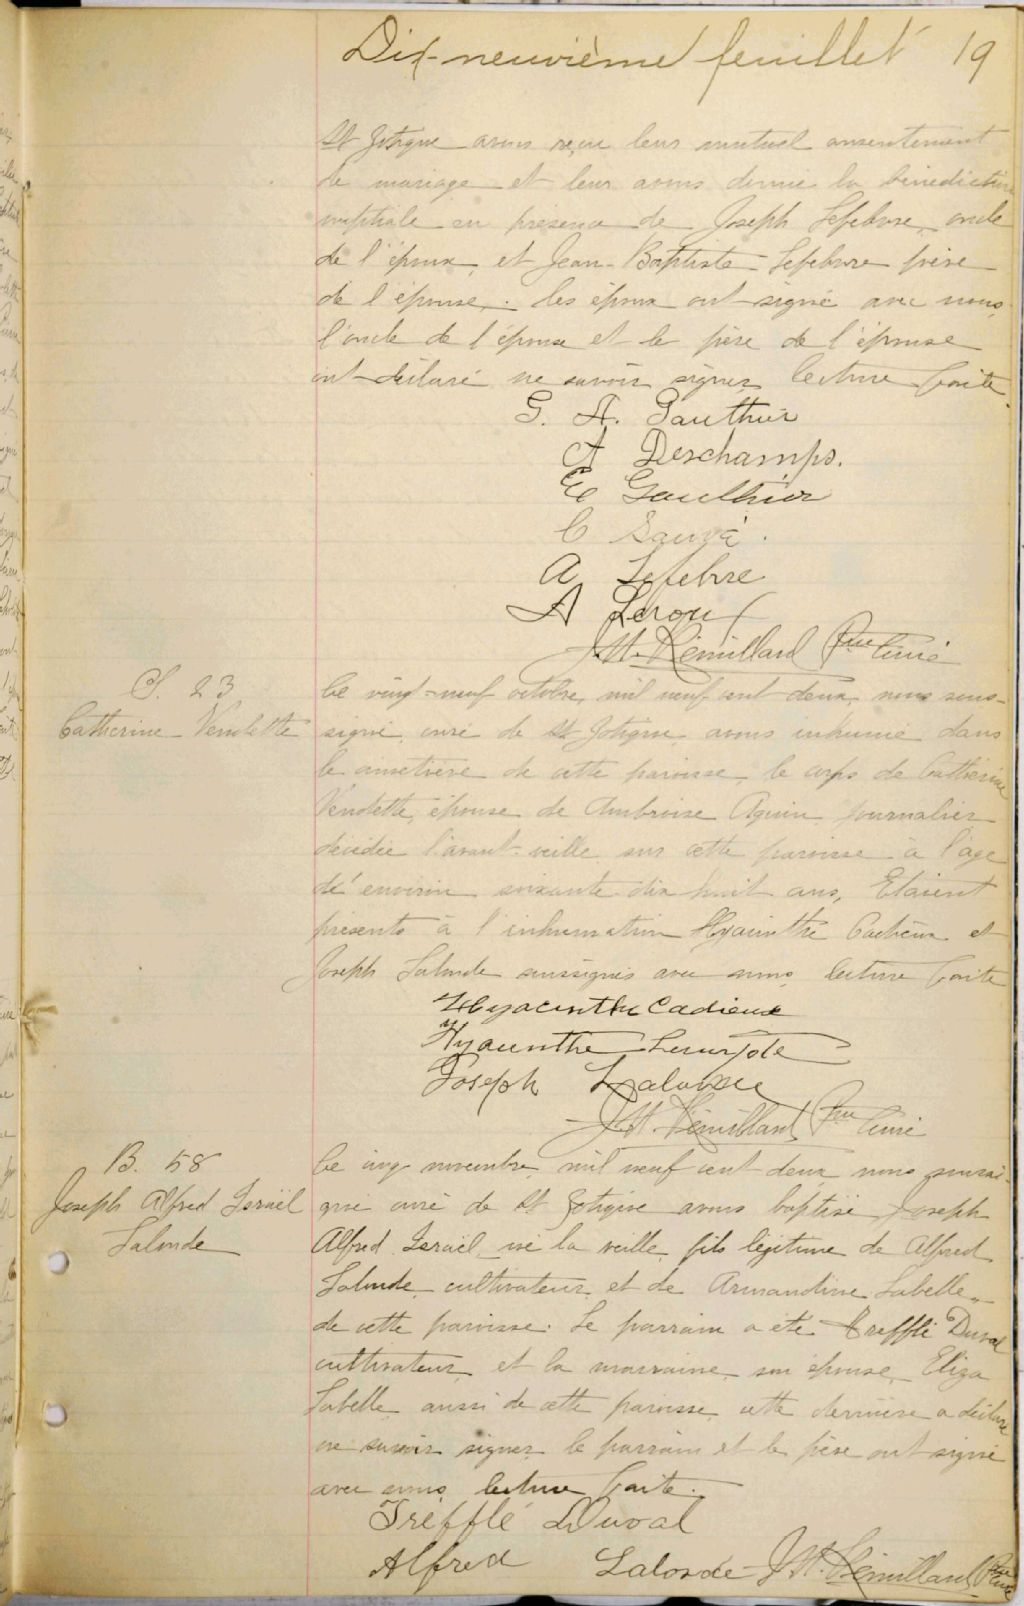 Dix-neuvième feuillet 19
St Zotique avons reçu leur mutuel consentement
de mariage et leur avons donné la bénédiction
nuptiale en présence de Joseph Lefebvre, oncle
de l'époux, et Jean-Baptiste Lefebvre père
de l'épouse. Les époux ont signé avec nous,
l'oncle de l'époux et le père de l'épouse
ont déclaré ne savoir signer. Lecture faite.
G. A. Gauthier
A Deschamps.
E Gauthier
C Sauvé.
A Lefebvre
A Leroux
J. M. Rémillard Ptre Curé
S. 23
Catherine Vendette
Le vingt-neuf octobre, mil neuf cent deux, nous sous-
signé, curé de St Zotique, avons inhumé dans
le cimetière de cette paroisse le corps de Catherine
Vendette, épouse de Ambroise Aquin, journalier
décédée l'avant-veille sur cette paroisse à l'âge
d'environ soixante-dix huit ans, Etaient
présents à l'inhumation Hyacinthe Cadieux et
Joseph Lalonde soussignés avec nous, lecture faite
Hyacinthe Cadieux
Hyacinthe
Joseph Lalonde
J. M. Rémillard Ptre Curé
B. 58
Joseph Alfred Israël
Lalonde
Le cinq novembre, mil neuf cent deux, nous soussi-
gné curé de St Zotique avons baptisé Joseph
Alfred Israël, né la veille, fils légitime de Alfred
Lalonde, cultivateur, et de Armandine Labelle,
de cette paroisse. Le parrain a été Treffle Duval
cultivateur, et la marraine, son épouse, Eliza
Labelle, aussi de cette paroisse, cette dernière a déclaré
ne savoir signer, le parrain et le père ont signé
avec nous, lecture faite.
Treffle Duval
Alfred Lalonde J. M. Rémillard Ptre Curé